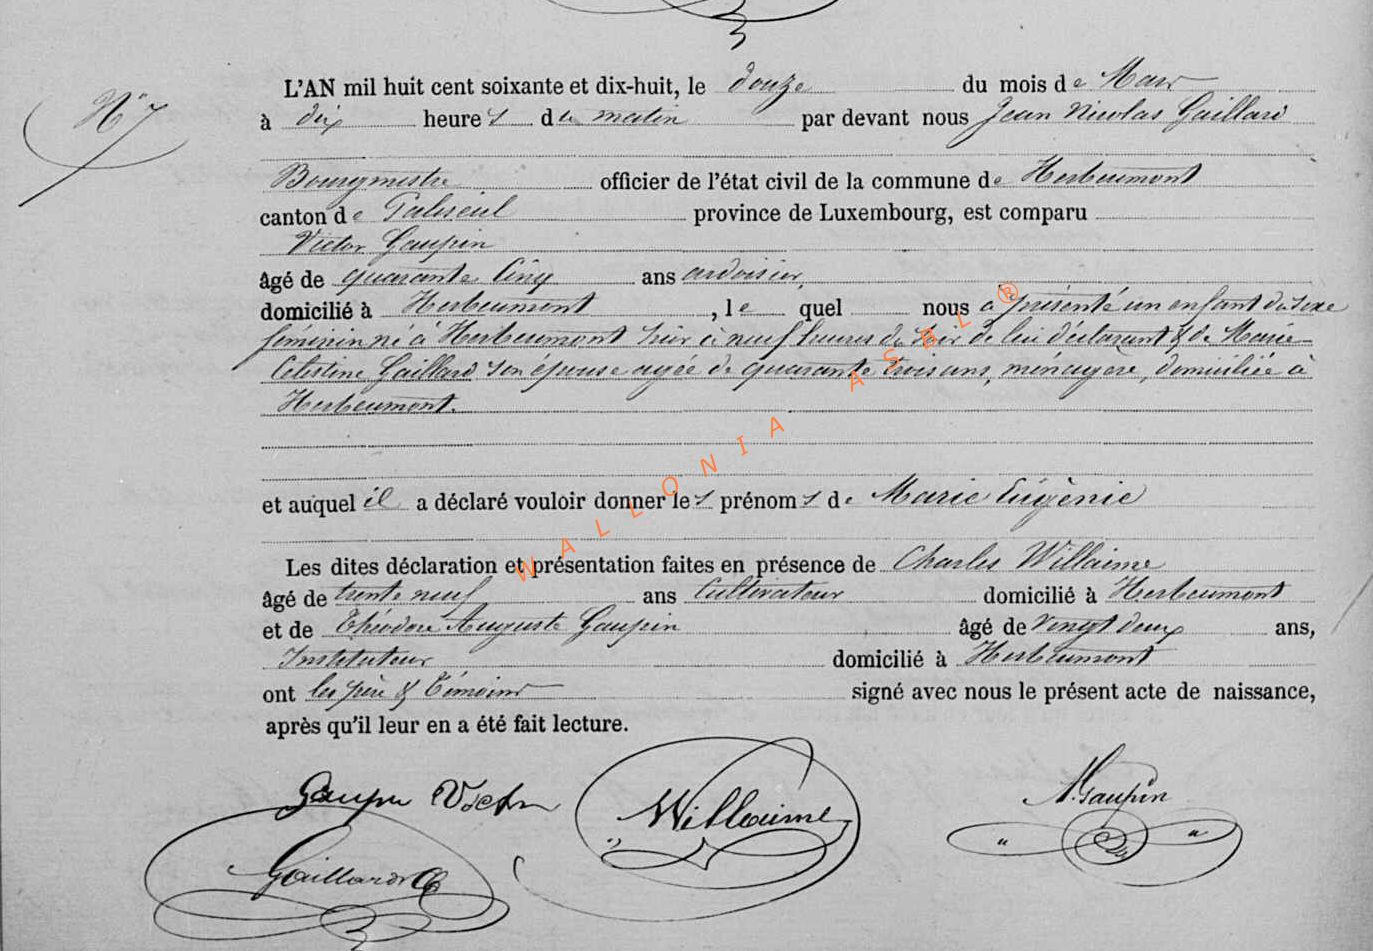 N° 7
L'AN mil huit cent soixante et dix-huit, le douze du mois de Mars
à dix heures du matin par devant nous Jean Nicolas Gaillard
Bourgmestre officier de l'état civil de la commune de Herbeumont
canton de Paliseul province de Luxembourg, est comparu
Victor Gaupin
âgé de quarante cinq ans ardoisier,
domicilié à Herbeumont, le quel nous a présenté un enfant du sexe
féminin né à Herbeumont hier à neuf heures du soir de lui déclarant & de Marie
Celestine Gaillard son épouse agée de quarante trois ans, ménagère, domiciliée à
Herbeumont.
et auquel il a déclaré vouloir donner les prénoms de Marie Eugènie
Les dites déclaration et présentation faites en présence de Charles Willaime
âgé de trente neuf ans Cultivateur domicilié à Herbeumont
et de Théodore Auguste Gaupin âgé de Vingt deux ans,
Instituteur domicilié à Herbeumont
ont les père & Témoins signé avec nous le présent acte de naissance,
après qu'il leur en a été fait lecture.
Gaupin Victor Willaime A. Gaupin
Gaillard
WALLONIA ASBL ®